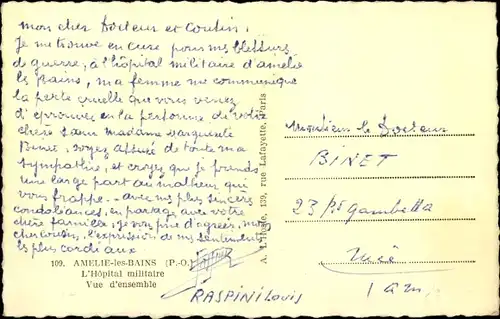 mon cher Docteur et Cousin.
Je me trouve en cure pour mes blessures
de guerre, à l'hôpital militaire d'amelie
les bains, ma femme me communique
la perte cruelle que vous venez
d'eprouver en la personne de votre
chère sœur Madame
Binet, soyez assuré de toute ma
sympathie, et croyez que je prends
une large part au malheur qui
vous frappe. avec mes plus sincères
condoléances, en partage, avec votre
chère famille, je vous prie d'agréer, mon
cher cousin, l'expression de mes sentiments
les plus cordiaux
109. AMELIE-les-BAINS (P.-O.)
L'Hôpital militaire
Vue d'ensemble
RASPINI Louis
139, rue Lafayette, Paris
Monsieur le Docteur
BINET
23 Gambetta
Nice
(A.M.)